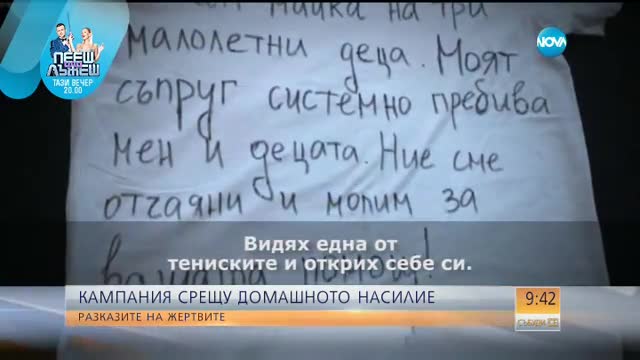 съм майка на три
малолетни деца. Моят
съпруг системно пребива
мен и децата. Ние сме
отчаяни и молим за
вашата помощ!
ПЕЕШ
ИЛИ
ЛЪЖЕШ
ТАЗИ ВЕЧЕР
20.00
NOVA
Видях една от
тениските и открих себе си.
КАМПАНИЯ СРЕЩУ ДОМАШНОТО НАСИЛИЕ
РАЗКАЗИТЕ НА ЖЕРТВИТЕ
9:42